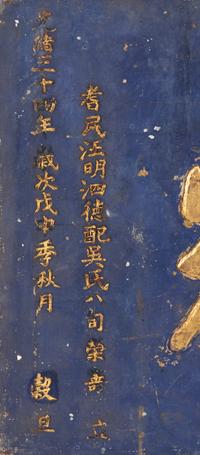 耆民汪明泗德配吳氏八旬榮壽 立
光緒三十四年 歲次戊申季秋月 穀旦